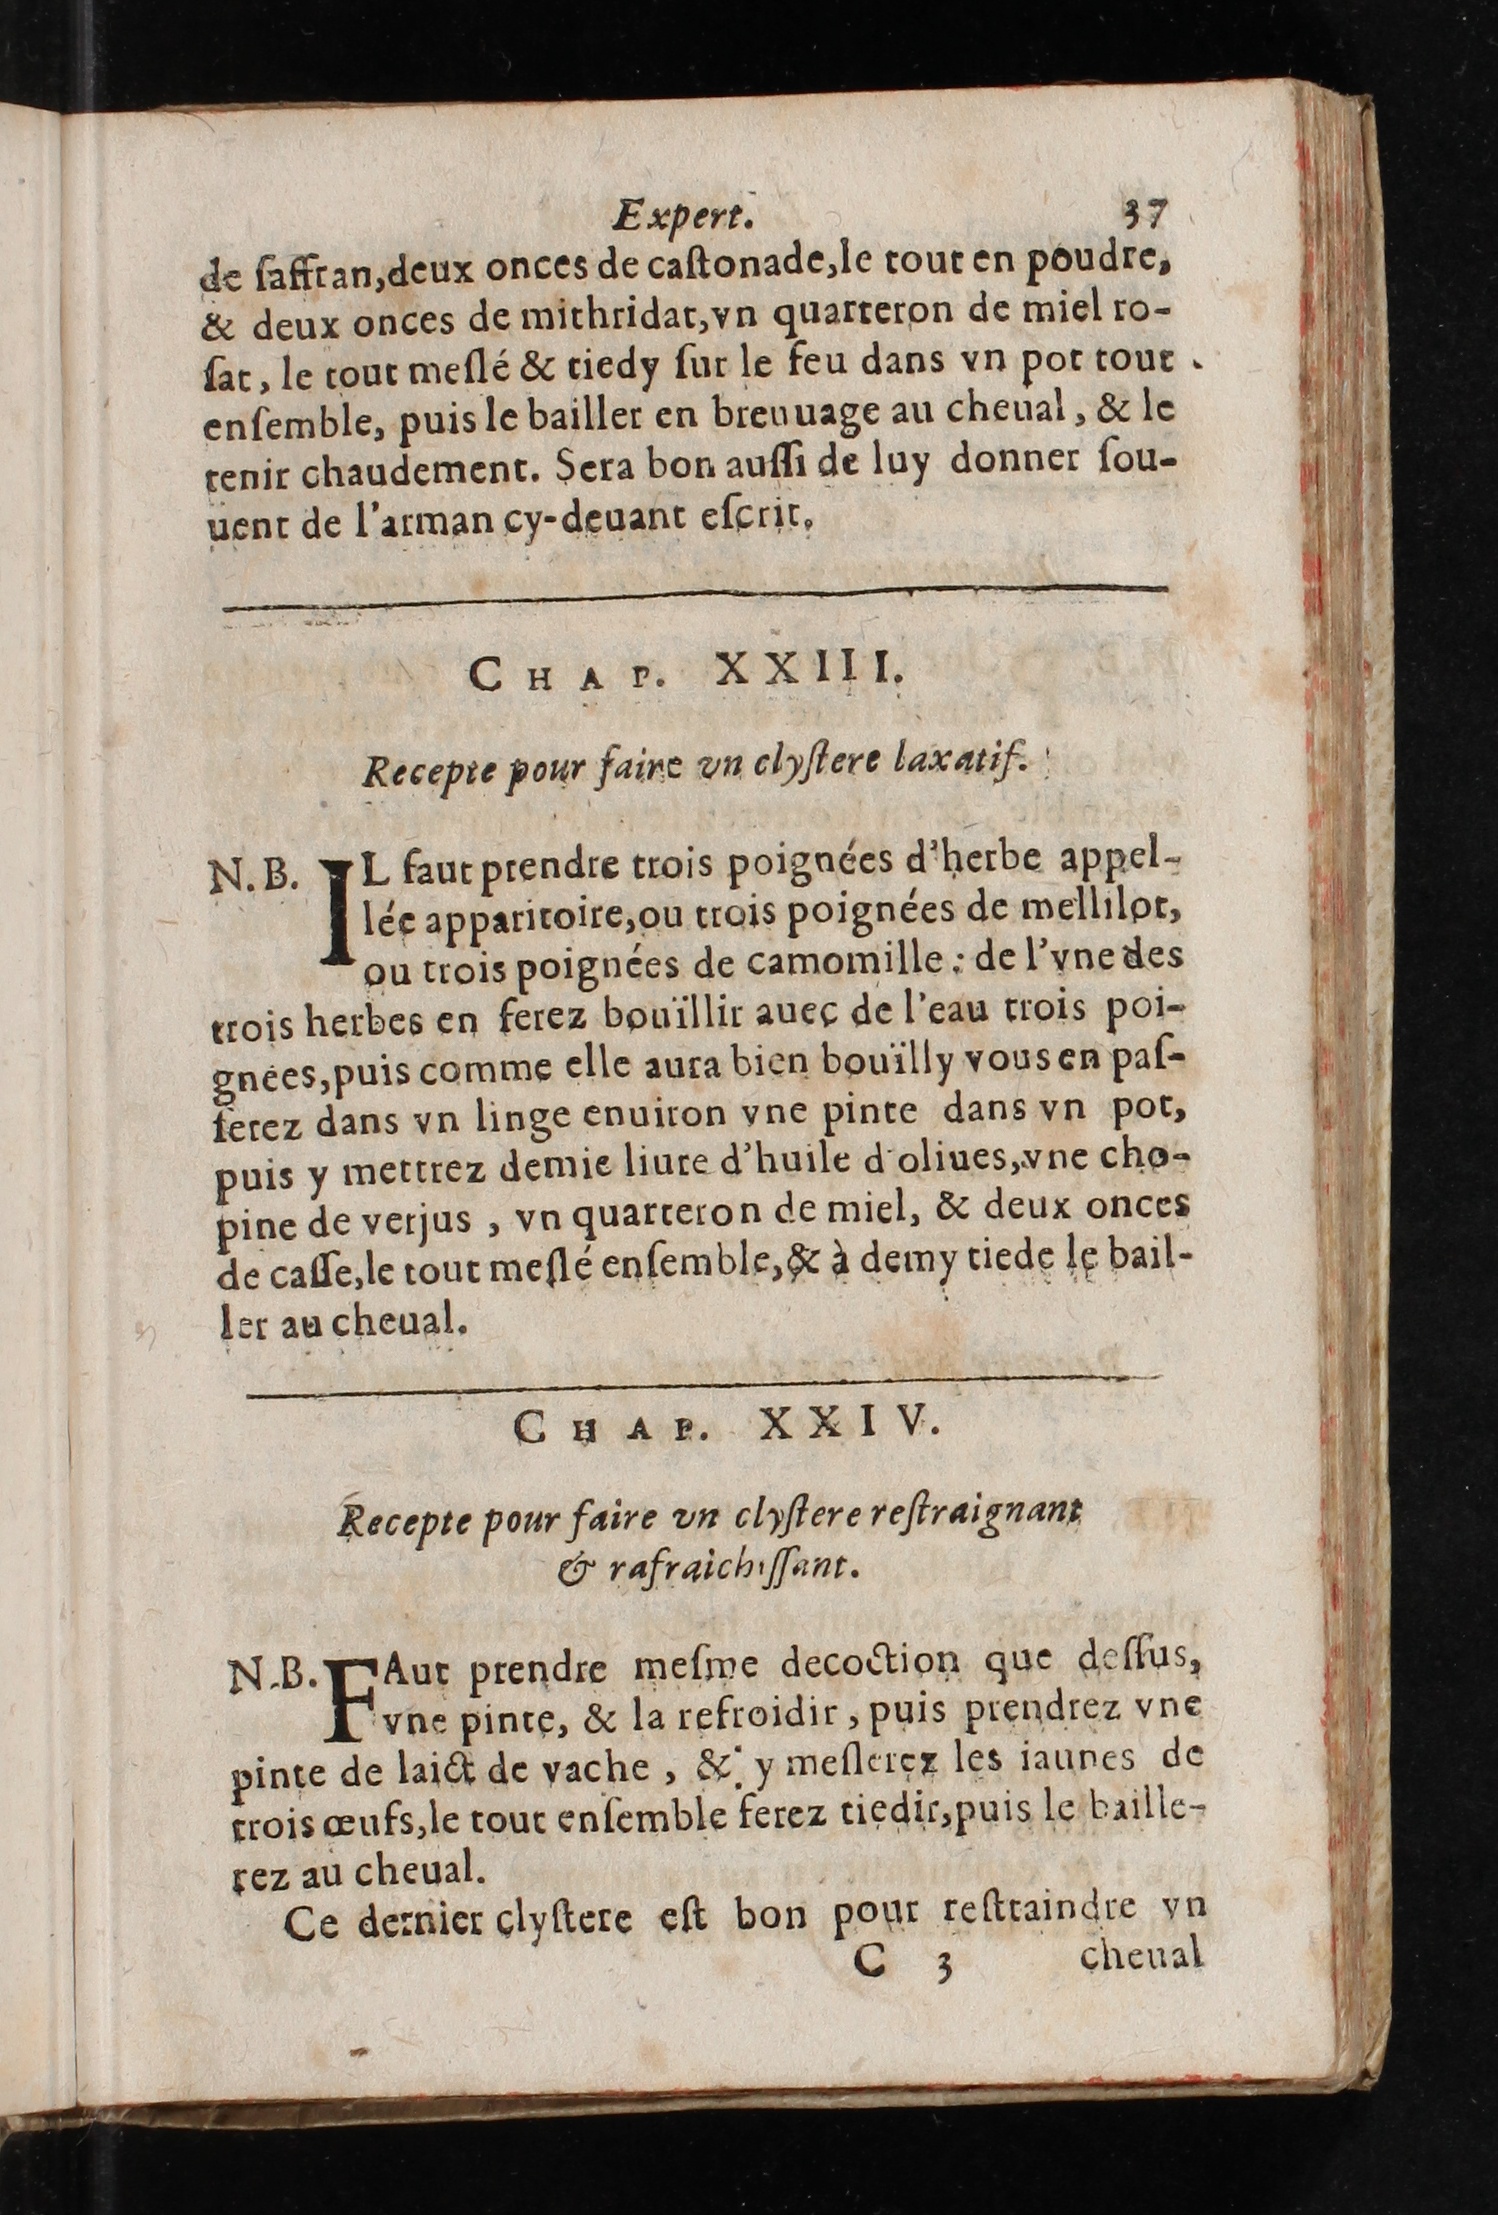 Expert. 37
de ſaffran,deux onces de caſtonade,le tout en poudre,
& deux onces de mithridat,vn quarteron de miel ro-
ſat, le tout meſlé & tiedy ſur le feu dans vn pot tout
enſemble, puis le bailler en breuuage au cheual, & le
tenir chaudement. Sera bon auſſi de luy donner ſou-
uent de l'arman cy-deuant eſcrit.
CHAP. XXIII.
Recepte pour faire vn clyſtere laxatif.
N.B. IL faut prendre trois poignées d'herbe appel-
lée apparitoire,ou trois poignées de mellilot,
ou trois poignées de camomille: de l'vne des
trois herbes en ferez bouïllir auec de l'eau trois poi-
gnées,puis comme elle aura bien bouïlly vous en paſ-
ſerez dans vn linge enuiron vne pinte dans vn pot,
puis y mettrez demie liure d'huile d'oliues,vne cho-
pine de verjus, vn quarteron de miel, & deux onces
de caſſe,le tout meſlé enſemble,& à demy tiede le bail-
ler au cheual.
CHAP. XXIV.
Recepte pour faire vn clyſtere reſtraignant
& rafraichiſſant.
N.B. FAut prendre meſme decoction que deſſus,
vne pinte, & la refroidir, puis prendrez vne
pinte de laict de vache, & y meſlerez les iaunes de
trois œufs,le tout enſemble ferez tiedir,puis le baille-
rez au cheual.
Ce dernier clyſtere eſt bon pour reſtraindre vn
C 3 cheual